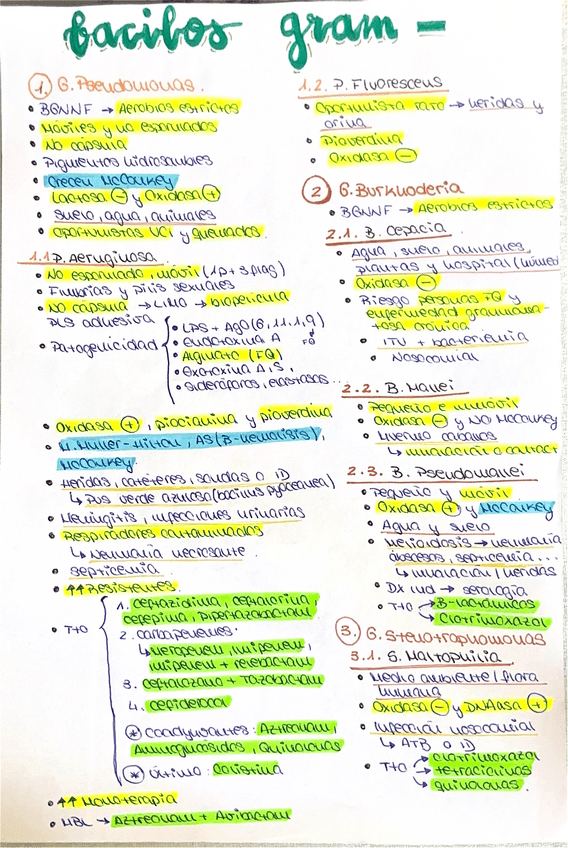 bacilos gram -
1. G. Pseudomonas.
• BGNNF → Aerobios estrictos
• Móviles y no esporulados
• No cápsula
• Pigmentos hidrosolubles
• Crecen McConkey
• Lactosa ⊖ y Oxidasa ⊕
• Suelo, agua, animales
• Oportunistas UCI y quemados.
1.1 P. Aeruginosa.
• No esporulado, móvil (1p + 3 flag)
• Fimbrias y pilis sexuales
• No cápsula → Limo → biopelícula
PLS adhesiva
• Patogenicidad
• LPS + AgO (6, 11, 1, 9)
• endotoxina A
FQ
• Alginato (FQ)
• Exotoxina A, S,
• Sideróforos, elastasas...
• Oxidasa ⊕, piocianina y pioverdina
• M. Müller-Hilton, AS (β-hemolisis),
McConkey.
• Heridas, catéteres, sondas o ID
↳ Pus verde azulosa (bacilus pyoceanea)
• Meningitis, infecciones urinarias
• Respiradores contaminados
↳ Neumonía necrosante.
• Septicemia.
• ↑↑ Resistentes.
• Tto
1. Ceftazidima, ceftalorina,
cefepima, Piper+tazobactam
2. Carbapenemes.
↳ Meropenem, imipenem,
imipenem + relebactam
3. Ceftolozano + Tazobactam
4. Cefiderocol
* Coadyuvantes: Aztreonam,
Aminoglucosidos, Quinolonas
* Última: Colistina
• ↑↑ Monoterapia
• MBL → Aztreonam + Avibactam
1.2. P. Fluorescens
• Oportunista raro → heridas y
orina
• Pioverdina
• Oxidasa ⊖
2 G. Burkholderia
• BGNNF → Aerobios estrictos
2.1. B. Cepacia.
• Agua, suelo, animales,
plantas y hospital (húmed
• Oxidasa ⊖
• Riesgo personas FQ y
enfermedad granuloma-
tosa crónica
• ITU + bacteriemia
• Nosocomial
2.2. B. Mallei
• Pequeño e inmóvil
• Oxidasa ⊖ y No McConkey
• Muermo caballos
↳ inhalación o contact
2.3. B. Pseudomallei
• Pequeño y móvil
• Oxidasa ⊕ y McConkey
• Agua y suelo
• Melioidosis → neumonía
abscesos, septicemia...
↳ inhalación / heridas
• Dx ind → serología
• Tto → B-lactámicos
→ Clotrimoxazol
3. G. Stenotrophomonas
3.1. S. Maltophilia
• Medio ambiente / flora
humana
• Oxidasa ⊖ y DNAasa ⊕
• Infección nosocomial
↳ ATB o ID
• Tto → Clotrimoxazol
→ tetraciclinas
→ quinolonas